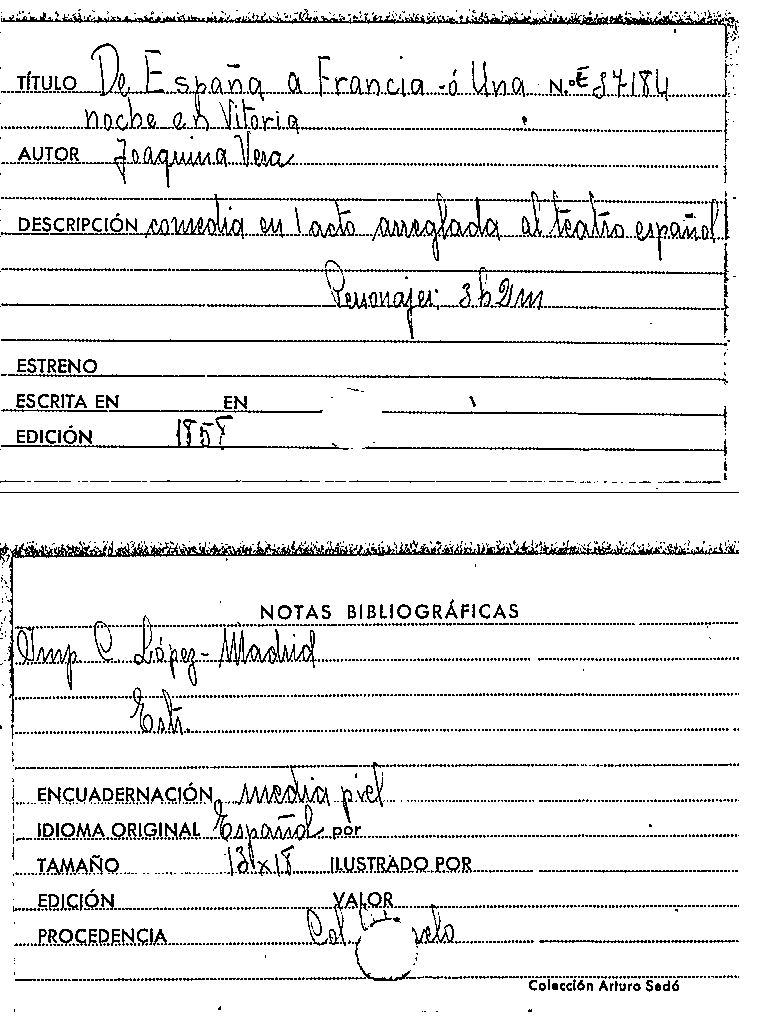 TÍTULO De España a Francia -ó Una N.º E 87184
noche en Vitoria
AUTOR Joaquina Vera
DESCRIPCIÓN comedia en 1 acto arreglada al teatro español
Personajes: 3h 2m
ESTRENO
ESCRITA EN EN
EDICIÓN 1858
NOTAS BIBLIOGRÁFICAS
Imp C López - Madrid
Estr.
ENCUADERNACIÓN media piel
IDIOMA ORIGINAL Español por
TAMAÑO 13x18 ILUSTRADO POR
EDICIÓN VALOR
PROCEDENCIA Col
Colección Arturo Sedó